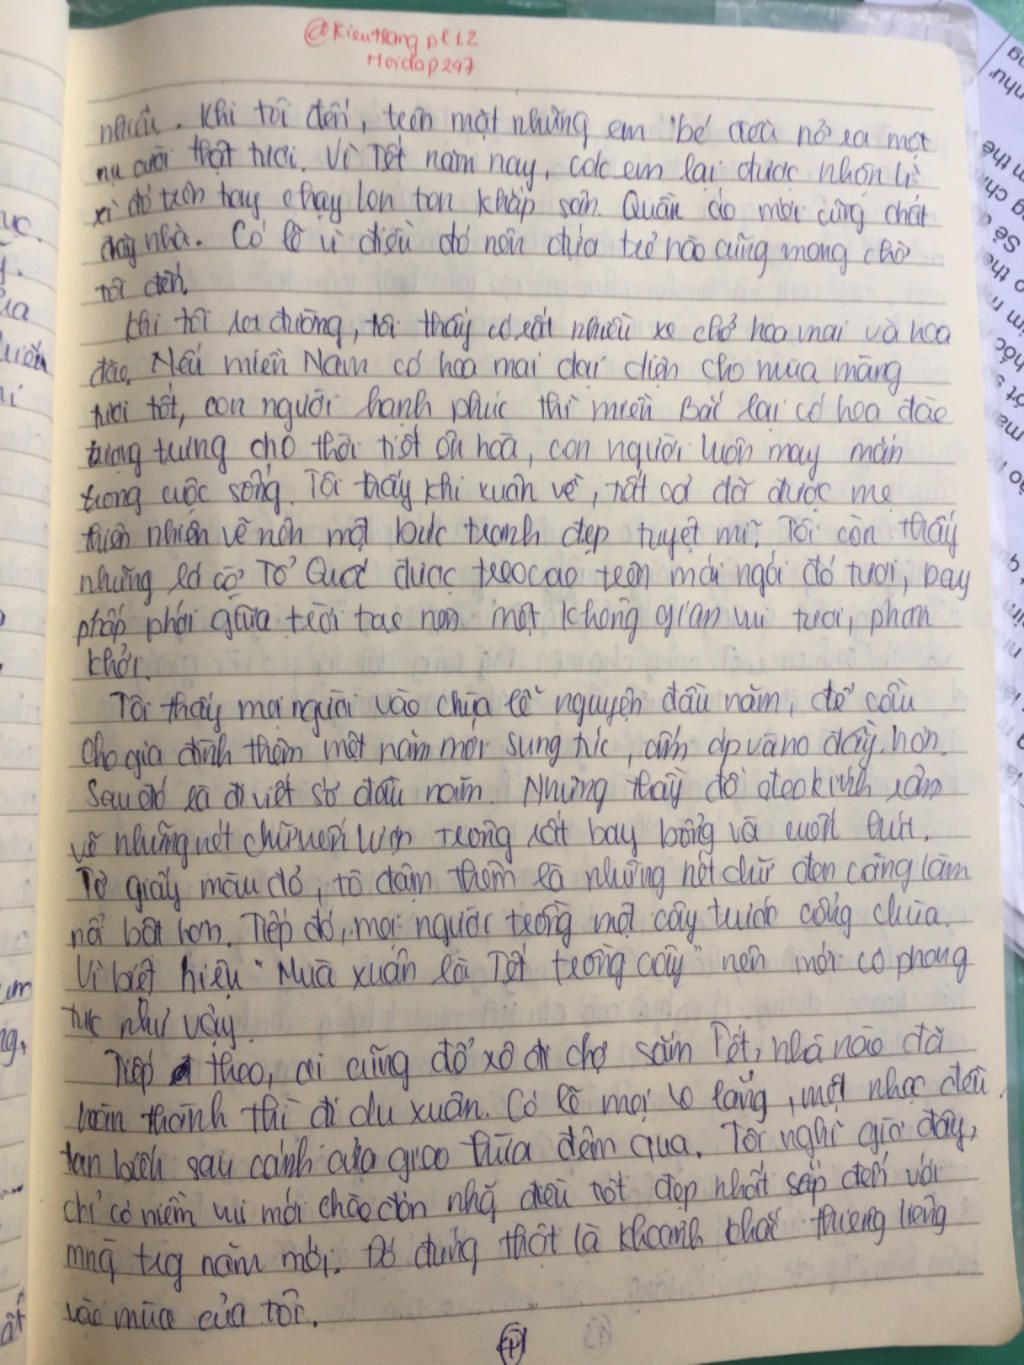 @Kieutrang pl12
Hoidap247
nhiều. Khi tôi đến, trên mặt những em bé đều nở ra một
nụ cười thật tươi. Vì Tết năm nay, các em lại được nhận lì
xì đỏ trên tay chạy lon ton khắp sân. Quần áo mới cũng chất
đầy nhà. Có lẽ vì điều đó nên đứa trẻ nào cũng mong chờ
tôi đến.
Khi tôi ra đường, tôi thấy có rất nhiều xe chở hoa mai và hoa
đào. Nếu miền Nam có hoa mai đại diện cho mùa màng
tươi tốt, con người hạnh phúc thì miền Bắc lại có hoa đào
tượng trưng cho thời tiết ôn hoà, con người luôn may mắn
trong cuộc sống. Tôi thấy khi xuân về, tất cả đã được mẹ
thiên nhiên vẽ nên một bức tranh đẹp tuyệt mĩ. Tôi còn thấy
những lá cờ Tổ Quốc được treo cao trên mái ngói đỏ tươi, bay
phấp phới giữa trời tạo nên một không gian vui tươi, phấn
khởi.
Tôi thấy mọi người vào chùa lễ nguyện đầu năm, để cầu
cho gia đình thêm một năm mới sung túc, ấm áp và no đầy hơn.
Sau đó là đi viết sớ đầu năm. Những thầy đồ đeo kính râm
vẽ những nét chữ uốn lượn trông rất bay bổng và cuốn hút.
Tờ giấy màu đỏ, tô đậm thêm là những nét chữ đen càng làm
nổi bật hơn. Tiếp đó, mọi người trồng một cây trước cổng chùa.
Vì biệt hiệu "Mùa xuân là Tết trồng cây" nên mới có phong
tục như vậy.
Tiếp theo, ai cũng đổ xô đi chợ sắm Tết, nhà nào đã
hoàn thành thì đi du xuân. Có lẽ mọi lo lắng, mệt nhọc đều
tan biến sau cánh cửa giao thừa đêm qua. Tôi nghĩ giờ đây,
chỉ có niềm vui mới chào đón nhg điều tốt đẹp nhất sắp đến với
mng trg năm mới. Đó đúng thật là khoảnh khắc thiêng liêng
vào mùa của tôi.